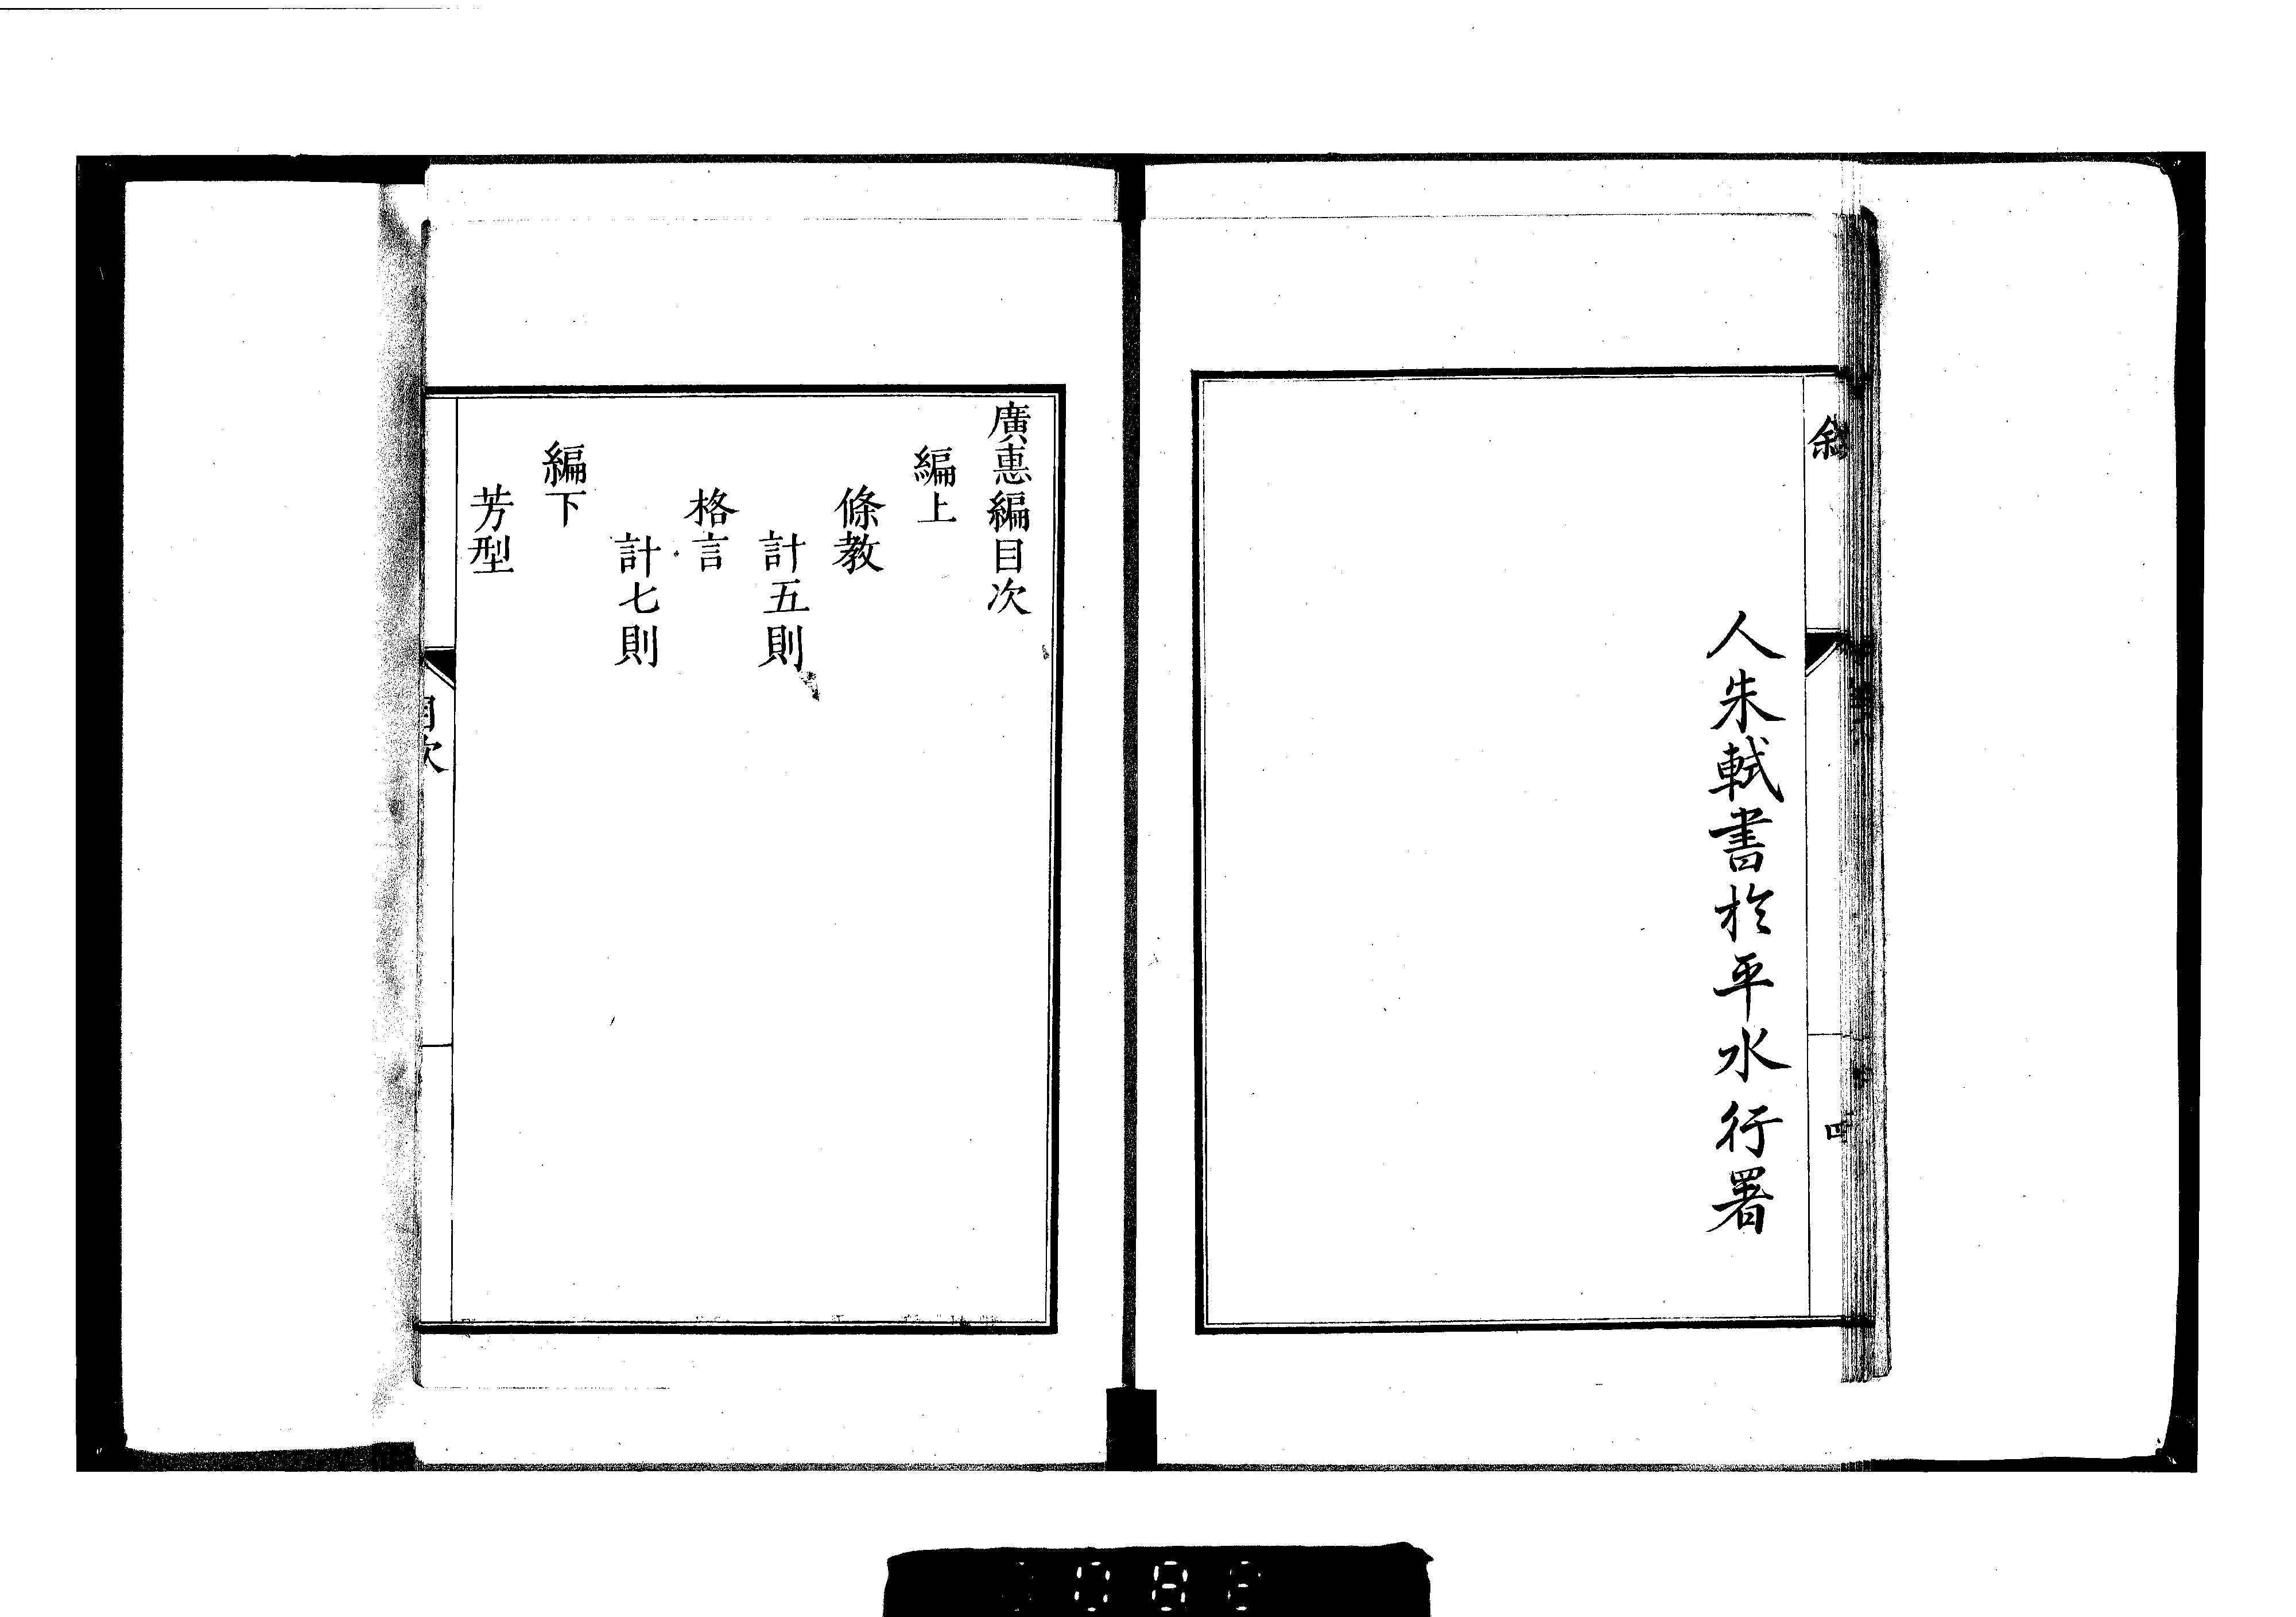 敘
人朱軾書於平水行署
四
廣惠編目次
編上
條教
計五則
格言
計七則
編下
芳型
目次